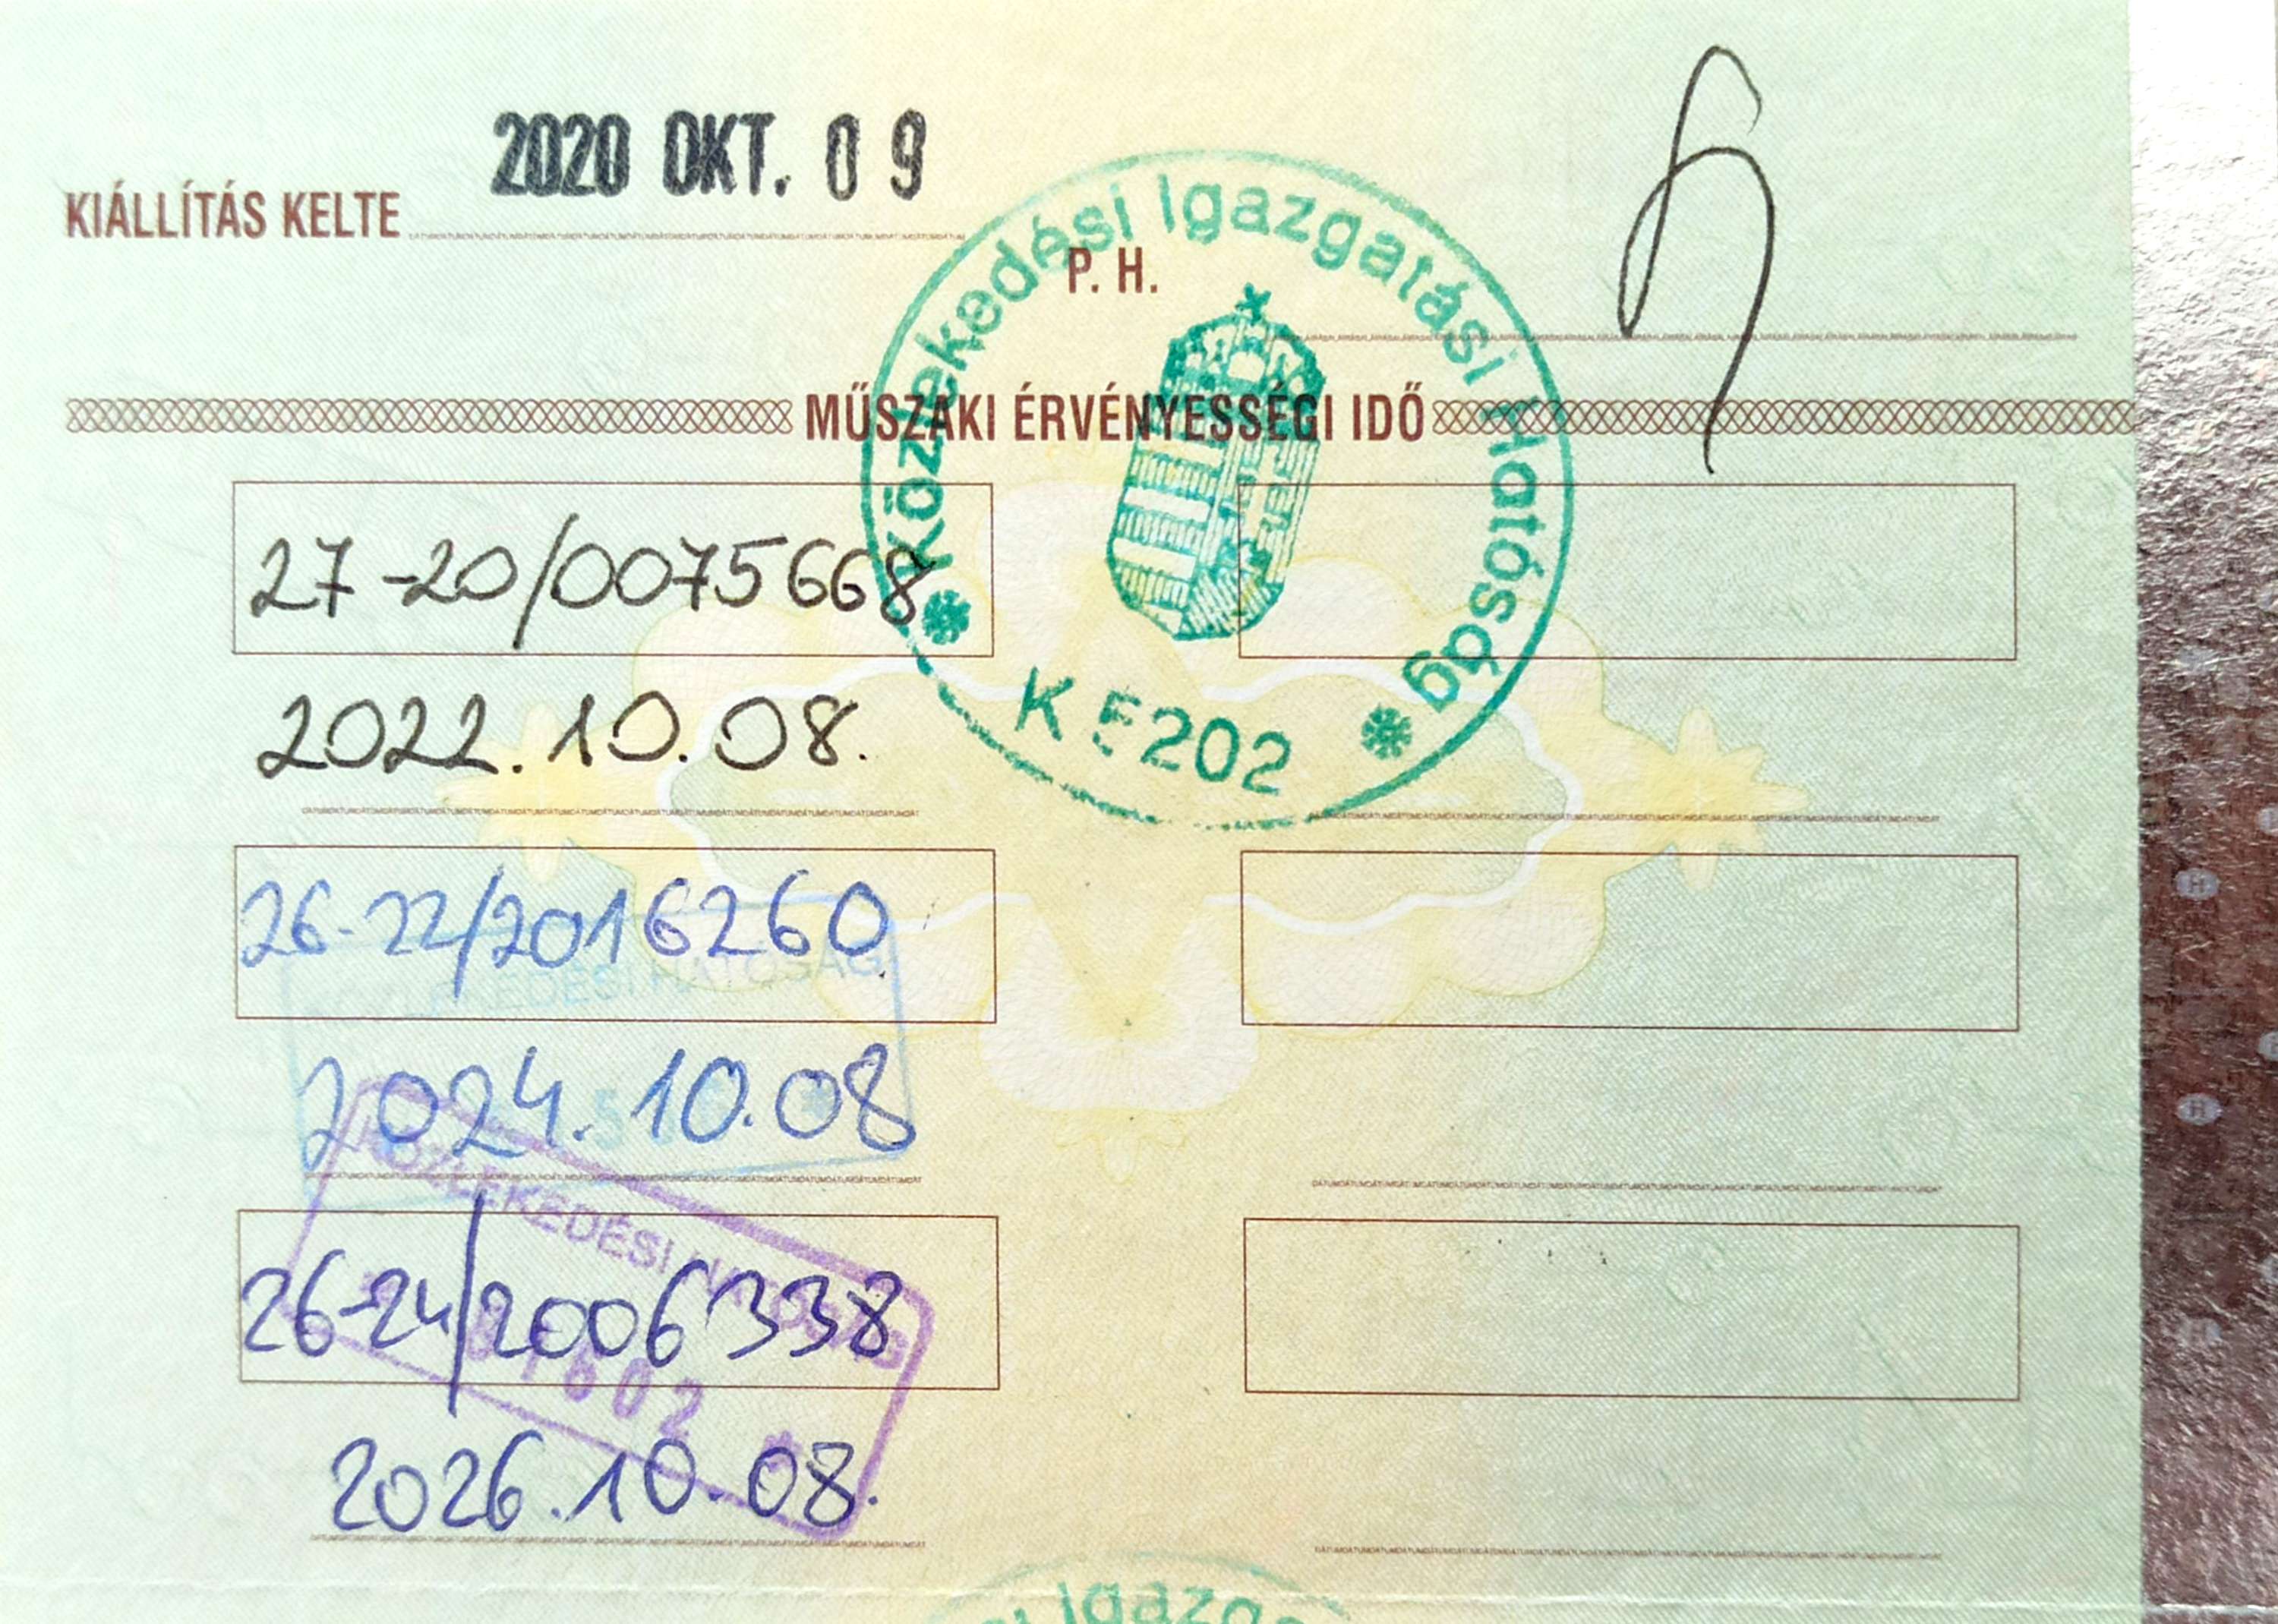 2020 OKT. 09
KIÁLLÍTÁS KELTE
P. H.
Közlekedési Igazgatási Hatóság
KE202
MŰSZAKI ÉRVÉNYESSÉGI IDŐ
27-20/0075668
2022.10.08.
26-22/2016260
KÖZLEKEDÉSI HATÓSÁG
2024.10.08
KÖZLEKEDÉSI HATÓSÁG
26-24/2006338
2026.10.08.
Igazga